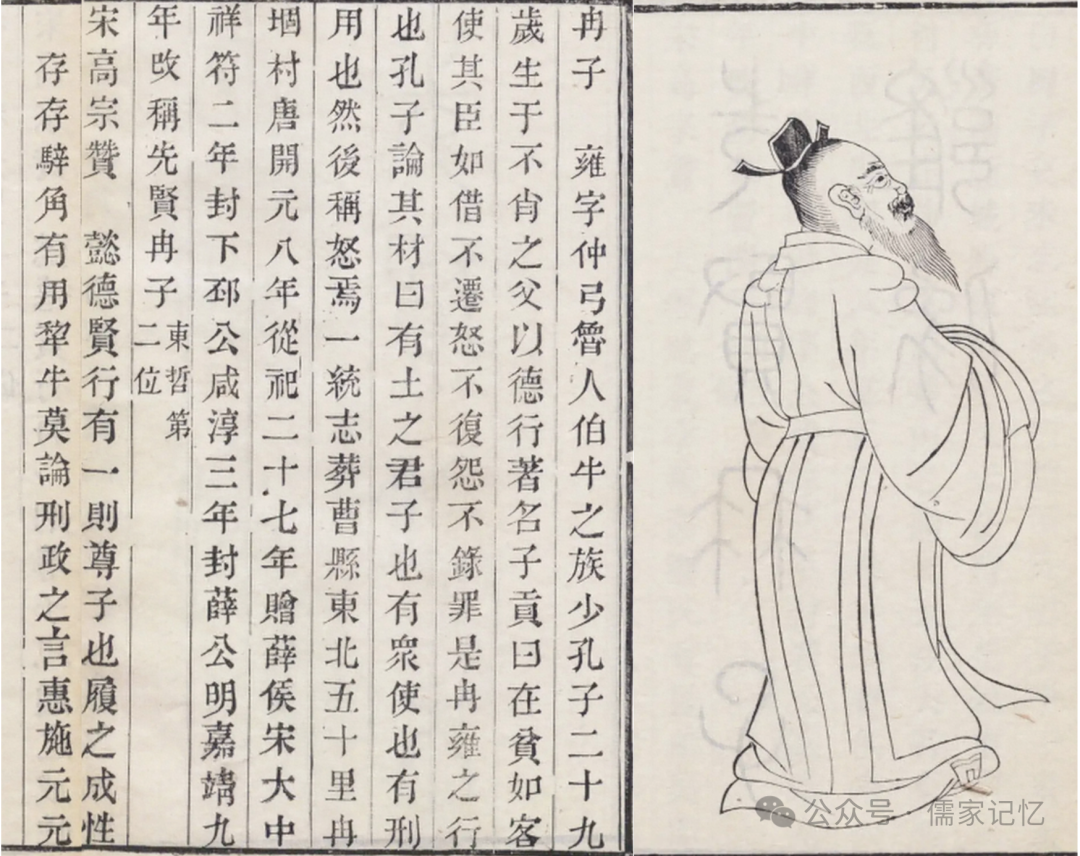 冉子　雍字仲弓魯人伯牛之族少孔子二十九
歲生于不肖之父以德行著名子貢曰在貧如客
使其臣如借不遷怒不復怨不錄罪是冉雍之行
也孔子論其材曰有土之君子也有衆使也有刑
用也然後稱怒焉一統志葬曹縣東北五十里冉
堌村唐開元八年從祀二十七年贈薛侯宋大中
祥符二年封下邳公咸淳三年封薛公明嘉靖九
年改稱先賢冉子東哲第
二位
宋高宗贊　懿德賢行有一則尊子也履之成性
存存騂角有用犂牛莫論刑政之言惠施元元
公众号 · 儒家记忆